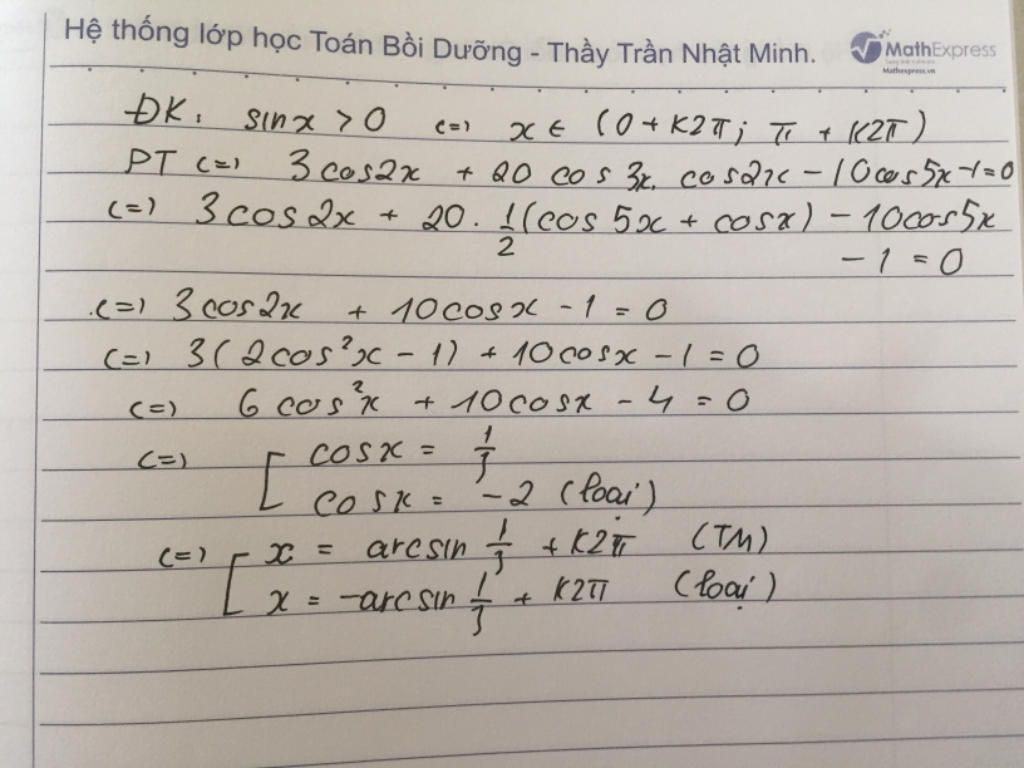 Hệ thống lớp học Toán Bồi Dưỡng - Thầy Trần Nhật Minh.
MathExpress
Mathexpress.vn
ĐK: sinx > 0 <=> x ∈ (0 + K2π; π + K2π)
PT <=> 3cos2x + 20 cos 3x. cos2x - 10cos5x - 1 = 0
<=> 3cos2x + 20. 1/2 (cos 5x + cosx) - 10cos5x
- 1 = 0
<=> 3cos2x + 10cosx - 1 = 0
<=> 3(2cos²x - 1) + 10cosx - 1 = 0
<=> 6cos²x + 10cosx - 4 = 0
<=> [ cosx = 1/3
cosx = -2 (loại)
<=> [ x = arcsin 1/3 + K2π (TM)
x = -arcsin 1/3 + K2π (loại)